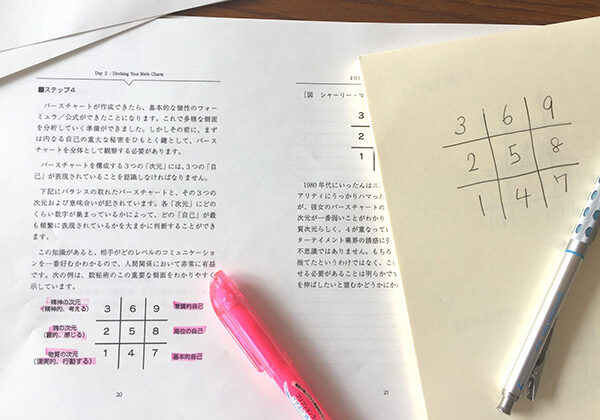 Day 2 : Devising Your Birth Charts
■ステップ4
バースチャートが作成できたら、基本的な個性のフォー
ミュラ／公式ができたことになります。これで多様な側面
を分析していく準備ができました。しかしその前に、まず
は内なる自己の重大な秘密をひもとく鍵として、バース
チャートを全体として観察する必要があります。
バースチャートを構成する3つの「次元」には、3つの「自
己」が表現されていることを認識しなければなりません。
下記にバランスの取れたバースチャートと、その3つの
次元および意味合いが記されています。各「次元」にどの
くらい数字が集まっているかによって、どの「自己」が最
も頻繁に表現されているかを大まかに判断することができ
ます。
この知識があると、相手がどのレベルのコミュニケーショ
ンを一番好むかわかるので、人間関係において非常に有益
です。次の例は、数秘術のこの重要な側面をわかりやすく
示しています。
精神の次元
(精神的、考える)
3 6 9
意識的自己
魂の次元
(霊的、感じる)
2 5 8
高位の自己
物質の次元
(現実的、行動する)
1 4 7
基本的自己
20
[図 シャーリー・マ
3
2
1
1980年代にいったんはニ
アリティにうっかりハマった
が、彼女のバースチャートの
次元が一番弱いことがわかり
質次元らしく、4が重なってい
ターテイメント業界の誘惑に引
不思議ではありません。もちろ
捨てたというわけではなく、こ
せる必要があることは明らかで
を伸ばしたいと望むかどうかにか
21
3 6 9
2 5 8
1 4 7